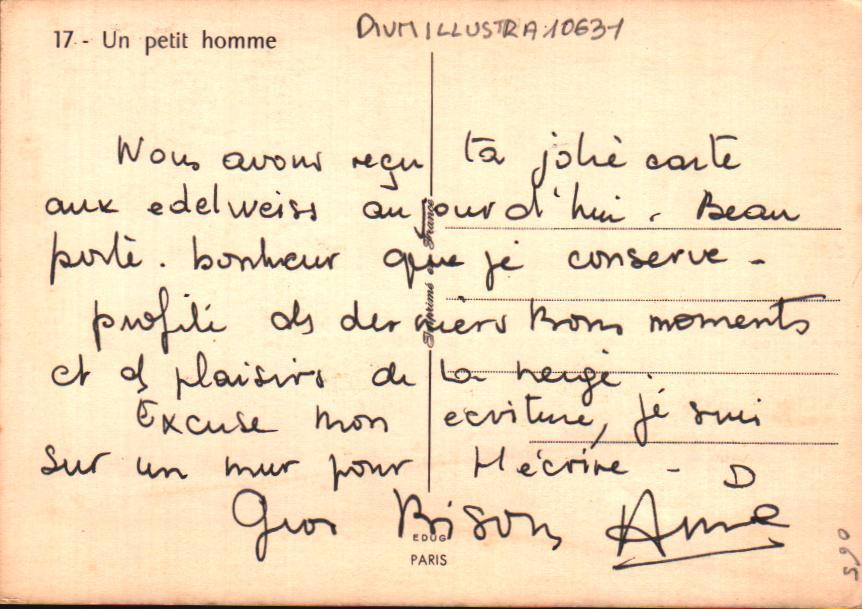 17 - Un petit homme
DIVMILLUSTRA 10631
Nous avons reçu ta jolie carte
aux edelweiss aujourd'hui. Beau
porte. bonheur que je conserve -
profite ds derniers bons moments
et ds plaisirs de la neige.
Excuse mon ecriture, je suis
sur un mur pour t'écrire -
Gros Bisous Anne
Imprimé en France
EDUG
PARIS